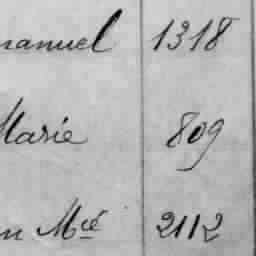 manuel 1318
Marie 809
n Mcé 2112